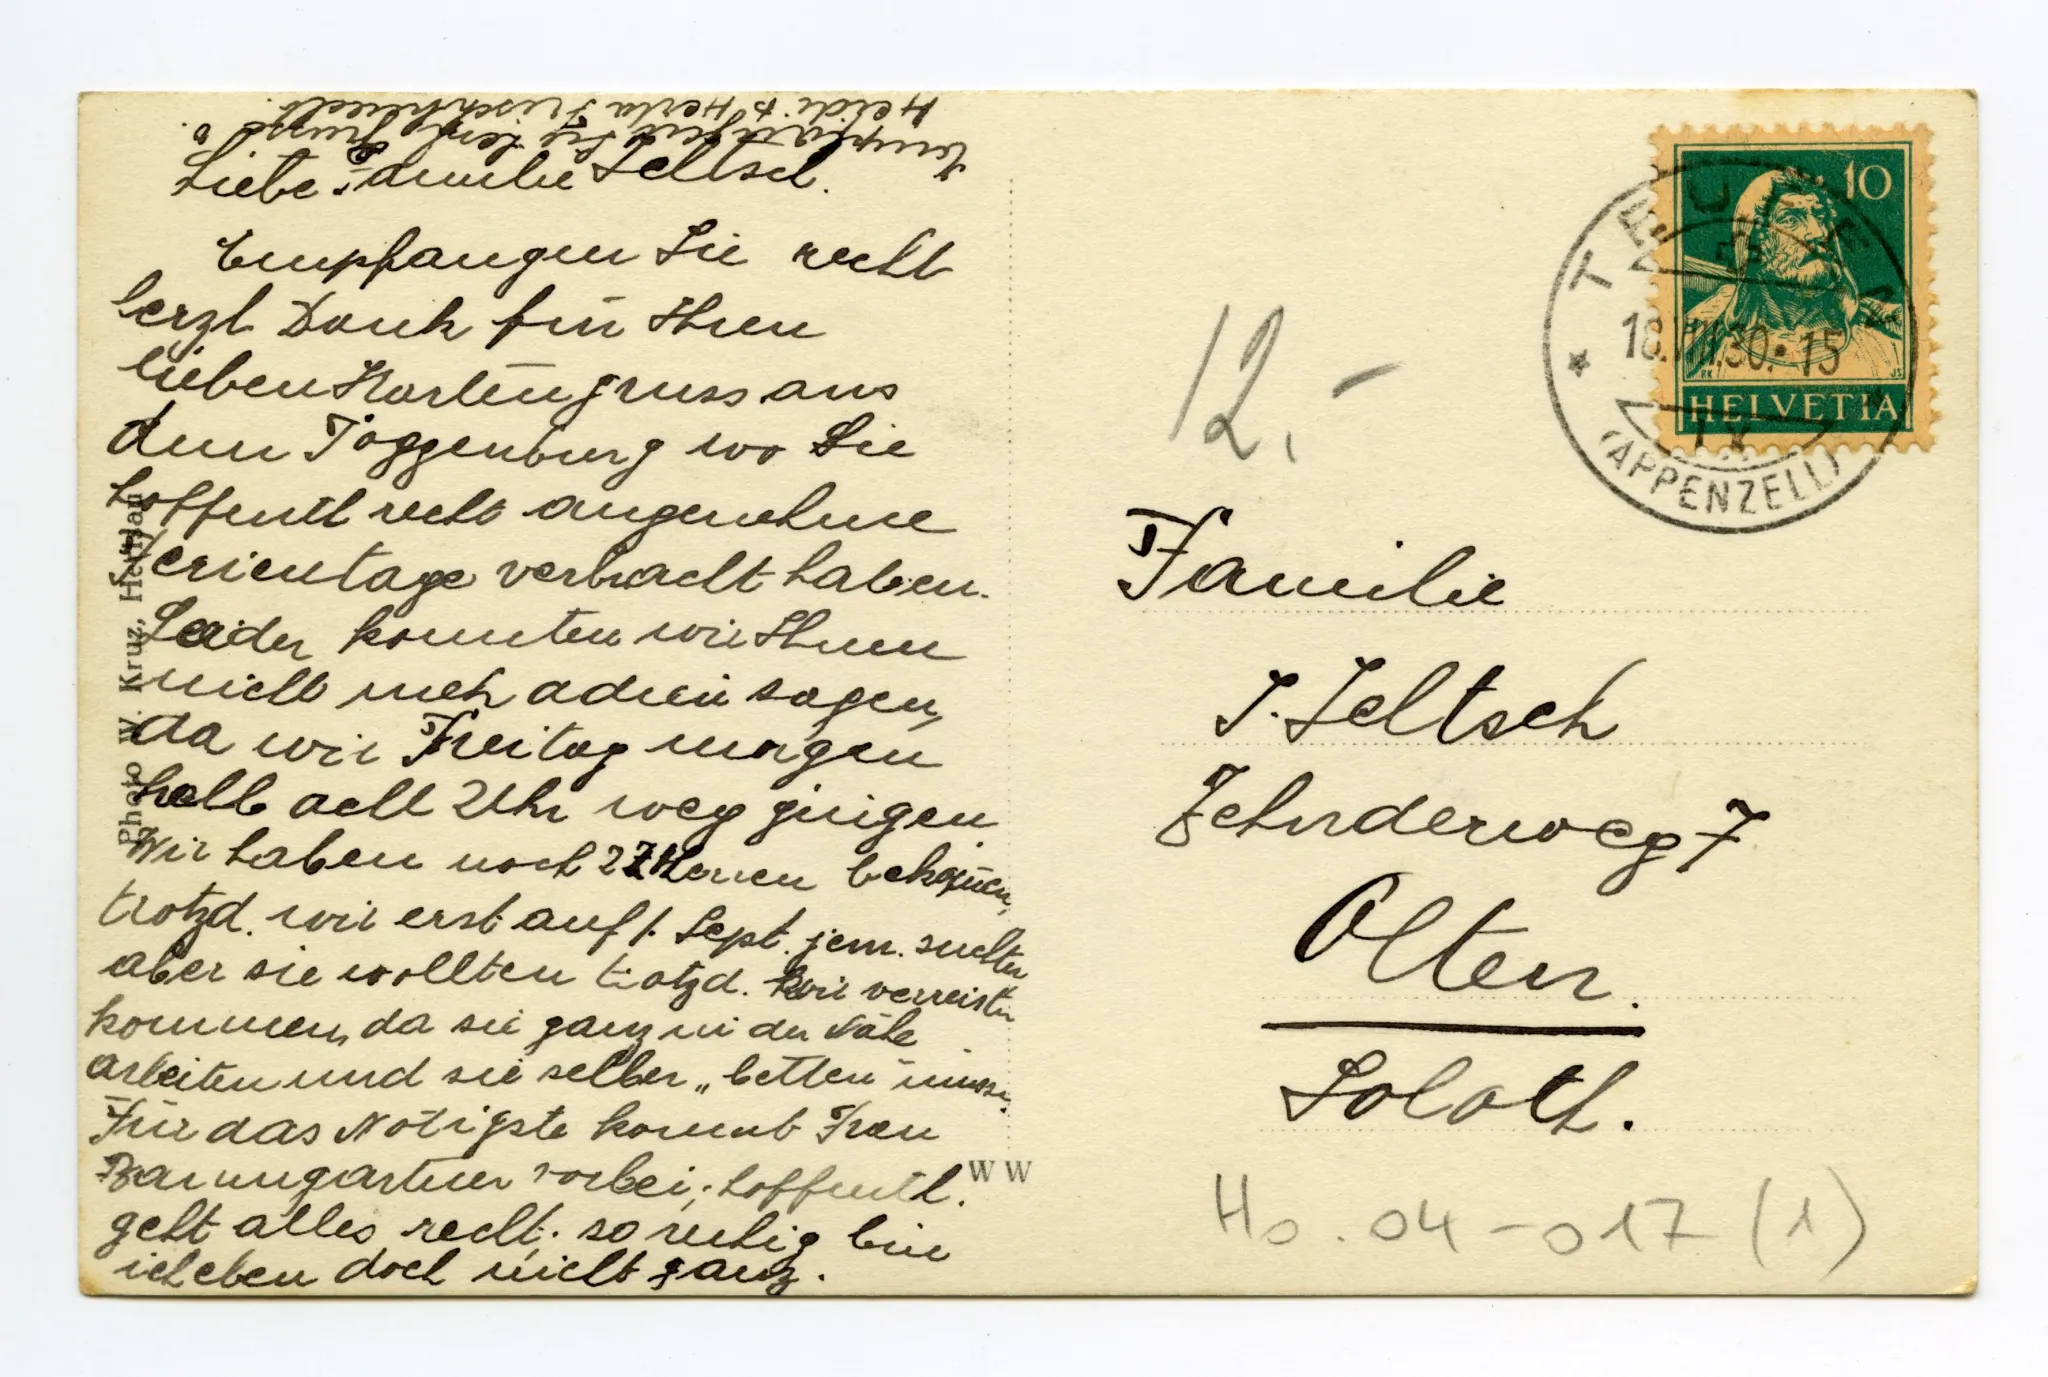 Liebe Familie Jeltsch.
Empfangen Sie recht
herzl. Dank für Ihren
lieben Kartengruss aus
dem Toggenburg wo Sie
hoffentl. recht angenehme
Ferientage verbracht haben.
Leider konnten wir Ihnen
nicht meh adieu sagen,
da wir Freitag morgen
halb acht Uhr weg gingen.
Wir haben noch 2 Herren bekommen,
trotzd. wir erst auf 1. Sept. jem. suchten
aber sie wollten trotzd. wir verreisten
kommen, da sie ganz in der Nähe
arbeiten und sie selber „betten" müssen.
Für das Nötigste kommt Frau
Baumgartner vorbei; hoffentl.
geht alles recht; so ruhig bin
ich eben doch nicht ganz.
Empfangen Sie herzl. Grüsse
Heidi & Herta
Photo W. Kruz, Herisau
WW
10
HELVETIA
TEUFEN
18.VIII.30.15
(APPENZELL)
12.-
Familie
J. Jeltsch
Zehnderweg 7
Olten.
Soloth.
Ho.04-017 (1)